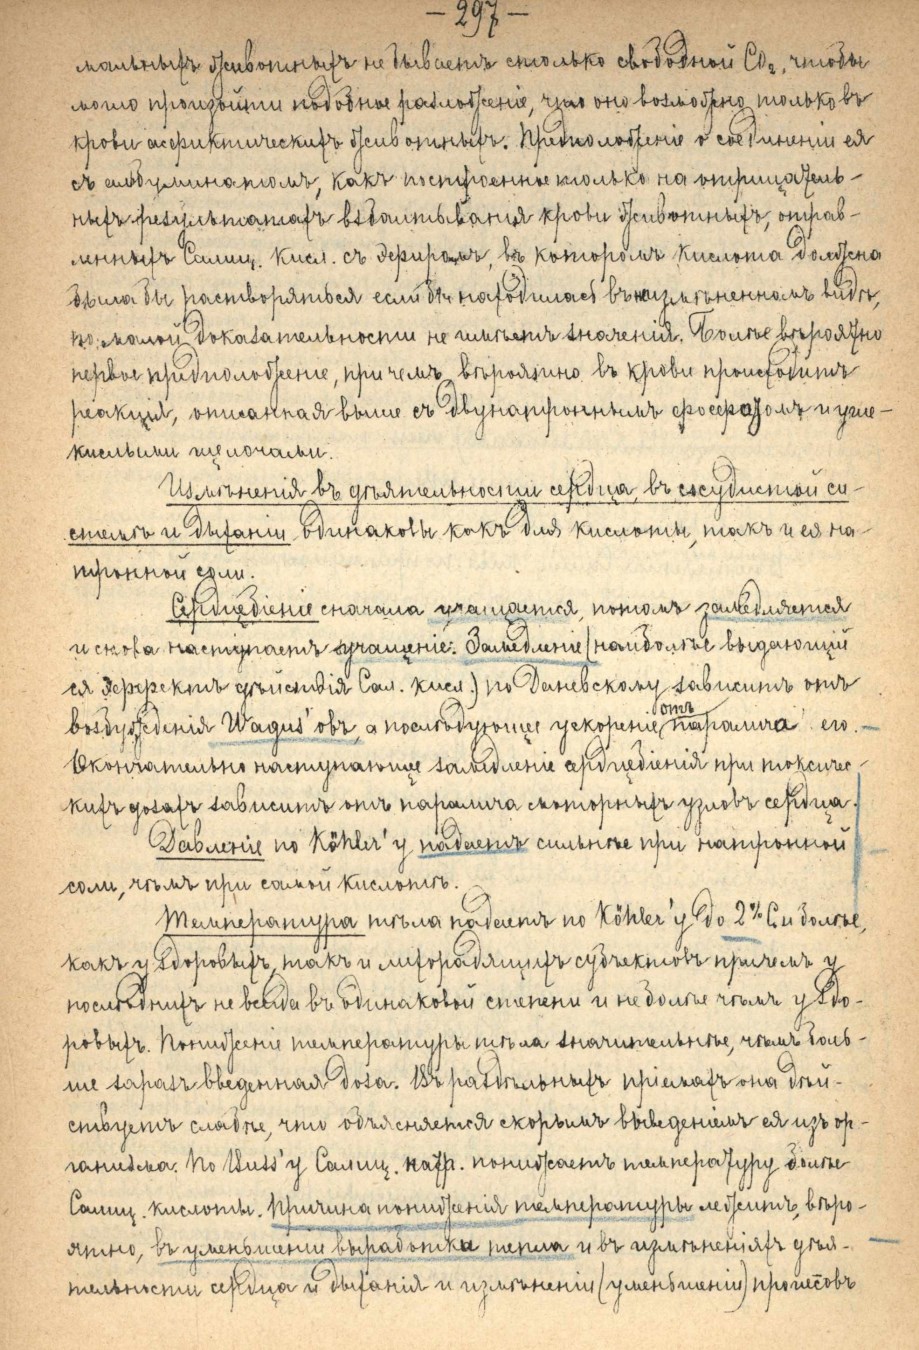 — 297 —
мальныхъ животныхъ не бываетъ столько свободной CO₂, чтобы
могло произойти подобное разложеніе, что оно возможно только въ
крови асфиктическихъ животныхъ. Предположеніе о соединеніи ея
съ альбуминатомъ, какъ построенное только на отрицатель-
ныхъ результатахъ взбалтыванія крови животныхъ, отрав-
ленныхъ Салиц. кисл. съ эфиромъ, въ которомъ кислота должна
была бы растворяться если бы находилась въ неизмѣненномъ видѣ,
по малой доказательности не имѣетъ значенія. Болѣе вѣроятно
первое предположеніе, причемъ, вѣроятно въ крови происходитъ
реакція, описанная выше съ двунатроннымъ фосфатомъ и угле-
кислыми щелочами.
Измѣненія въ дѣятельности сердца, въ сосудистой си-
стемѣ и дыханіи одинаковы какъ для кислоты, такъ и ея на-
тронной соли.
Сердцебіеніе сначала учащается, потомъ замедляется
и снова наступаетъ учащеніе. Замедленіе (наиболѣе выдающій
ся эффектъ дѣйствія Сал. кисл.) по Даневскому зависитъ отъ
возбужденія Wagus'овъ, а послѣдующее ускореніе отъ паралича его.
Окончательно наступающее замедленіе сердцебіенія при токсичес-
кихъ дозахъ зависитъ отъ паралича моторныхъ узловъ сердца.
Давленіе по Köhler'у падаетъ сильнѣе при натронной
соли, чѣмъ при самой кислотѣ.
Температура тѣла падаетъ по Köhler'у до 2° C и болѣе,
какъ у здоровыхъ, такъ и лихорадящихъ субъектовъ причемъ у
послѣднихъ не всегда въ одинаковой степени и не болѣе чѣмъ у здо-
ровыхъ. Пониженіе температуры тѣла значительнѣе, чѣмъ боль-
ше заразъ введенная доза. Въ раздѣльныхъ пріемахъ она дѣй-
ствуетъ слабѣе, что объясняется скорымъ выведеніемъ ея изъ ор-
ганизма. По у Салиц. натр. понижаетъ температуру болѣе
Салиц. кислоты. Причина пониженія температуры лежитъ, вѣро-
ятно, въ уменьшеніи выработки тепла и въ измѣненіяхъ дѣя-
тельности сердца и дыханія и измѣненіи (уменьшеніи) процессовъ